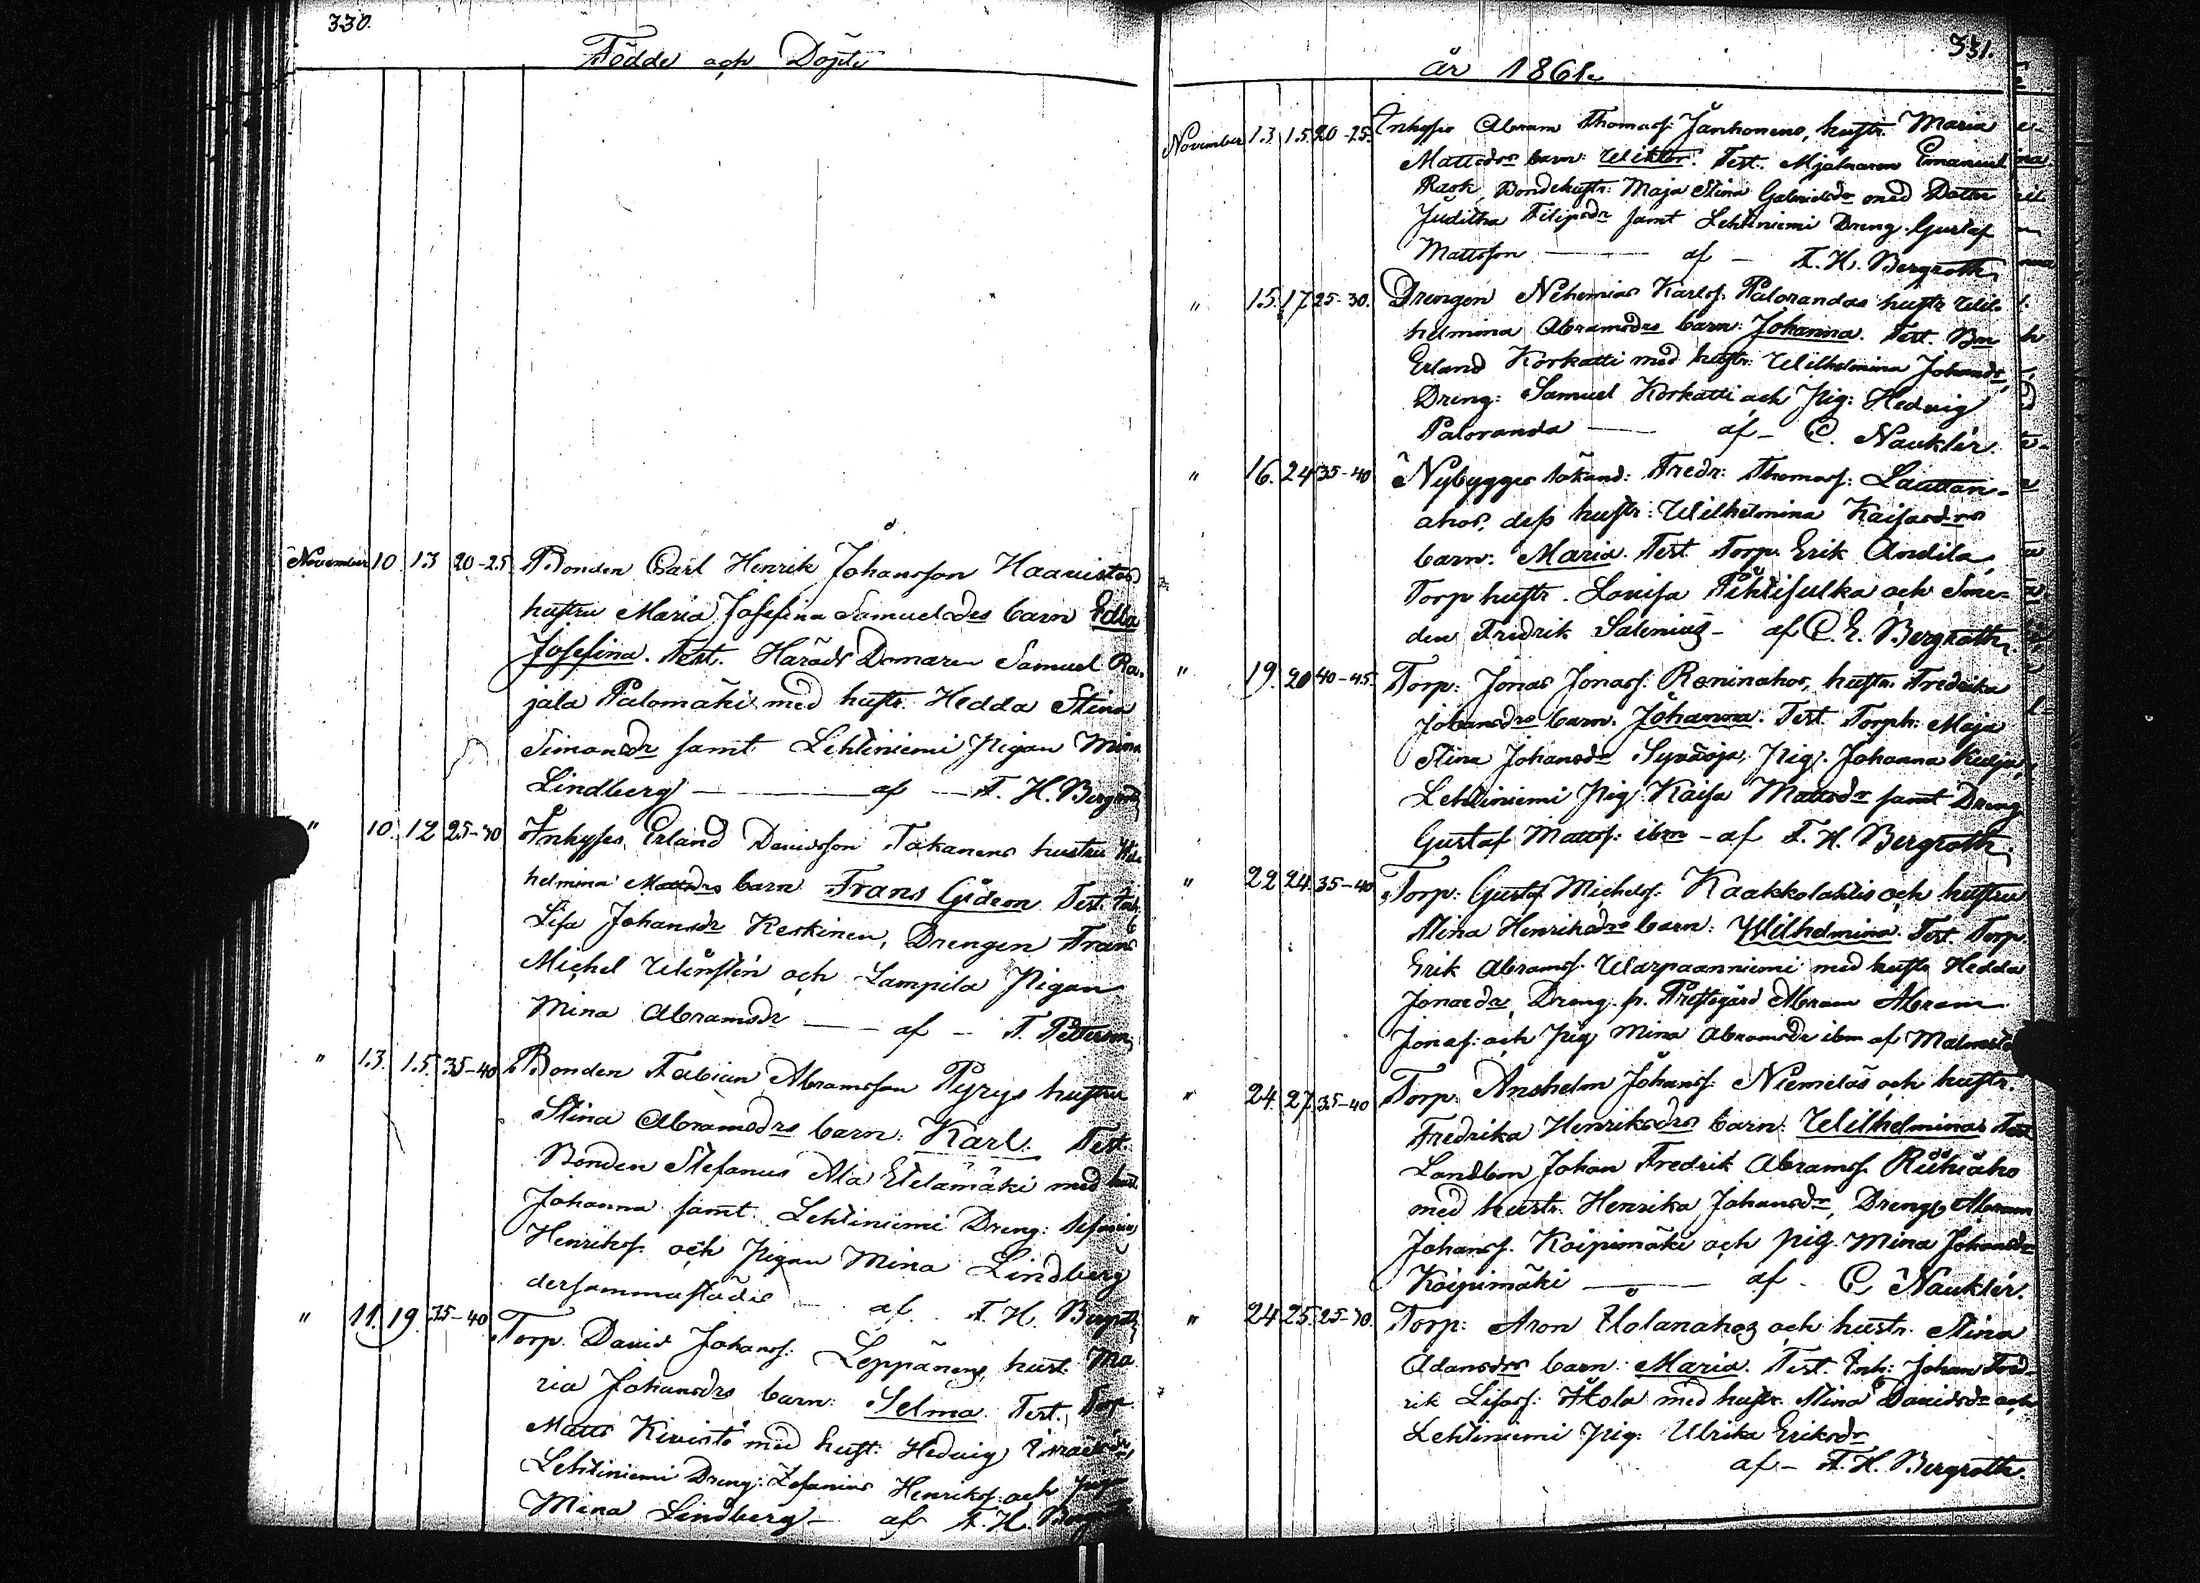 330.
Födde och Döpte
November 10 13 20-25 Bonden Carl Henrik Johansson Haavistos
hustru Maria Josefina Samuelsdrs barn Edla
Josefina. Test. Härads Domaren Samuel Ra-
jala Palomäki med hustr. Hedda Stina
Simonsdr samt Lehtiniemi Pigan Mina
Lindberg — af — F. H. Bergroth
" 10. 12 25-30 Inhyses Erland Davidsson Takanens hustru Wil-
helmina Mattsdrs barn Frans Gideon Test. Inh.
Lisa Johansdr Keskinen, Drengen Frans
Michel Winstén och Lampila Pigan
Mina Abramsdr — af — F. Petterson
" 13. 15. 35-40 Bonden Fabian Abramsson Pyrys hustru
Stina Abramsdrs barn: Karl. Test.
Bonden Stefanus Ala Etelämäki med hust.
Johanna samt Lehtiniemi Dreng: Sefanias
Henrikss. och Pigan Mina Lindberg
dersammastädes — af F. H. Bergroth
" 11. 19. 35-40 Torp. David Johanss: Leppänens, hust. Ma
ria Johansdrs barn: Selma. Test. Torp.
Matts Kivistö med hust: Hedvig Israelsdr,
Lehtiniemi Dreng: Zefanias Henrikss: och Pig
Mina Lindberg — af F. H.
331.
år 1861.
November 13. 15. 20-25. Inhyses Abram Thomass: Janhonens, hustr. Maria
Mattsdrs barn: Wiktor. Test. Mjölnaren Emanuel
Rask, Bondehustr: Maja Stina Gabrielsdr med Dotter
Juditha Filipsdr samt Lehtiniemi Dreng. Gustaf
Mattsson — af — F. H. Bergroth
" 15. 17. 25-30. Drengen Nehemias Karlss. Palorandas hustr. Wil-
helmina Abramsdrs barn: Johanna. Test. Bn
Erland Korkatti med hustr: Wilhelmina Johansdr,
Dreng: Samuel Korkatti och Pig: Hedvig
Paloranda — af — C. Nauklér.
" 16. 24 35-40 Nybygges sökand: Fredr: Thomass: Lauttan-
ahos, dess hustr: Wilhelmina Kaisasdrs
barn: Maria. Test Torp. Erik Andila,
Torp hustr. Lovisa Pihtisulka och Sme-
den Fredrik Salenius — af C. E. Bergroth
" 19. 20 40-45. Torp: Jonas Jonass: Reninahos, hustr. Fredrika
Johansdrs barn. Johanna. Test. Torph: Maja
Stina Johansdr Syväoja, Pig. Johanna Kulju,
Lehtiniemi Pig: Kaisa Mattsdr samt Dreng
Gustaf Mattss: ibm — af F. H. Bergroth.
" 22 24. 35-40 Torp: Gustaf Michelss: Kaakkolahtis och hustru
Stina Henriksdrs barn: Wilhelmina. Test. Torp.
Erik Abramss. Warpaanniemi med hustr Hedda
Jonasdr, Dreng. fr. Prestgård Abram Abram
Jonass: och Pig Mina Abramsdr ibm af
" 24. 27. 35-40 Torp: Anshelm Johanss: Niemeläs och hustr.
Fredrika Henriksdrs barn: Wilhelmina Test
Landbon Johan Fredrik Abramss. Riihiaho
med hustr. Henrika Johansdr, Dreng: Abram
Johanss. Koipimäki och pig. Mina Johansdr
Koipimäki — af — C. Nauklér.
" 24 25. 25-30. Torp: Aron Uolanahos och hustr. Stina
Adamsdrs barn: Maria. Test. Inh: Johan Fred-
rik Lisass: med hustr. Stina Davidsdr och
Lehtiniemi Pig: Ulrika Eriksdr
af — F. H. Bergroth.